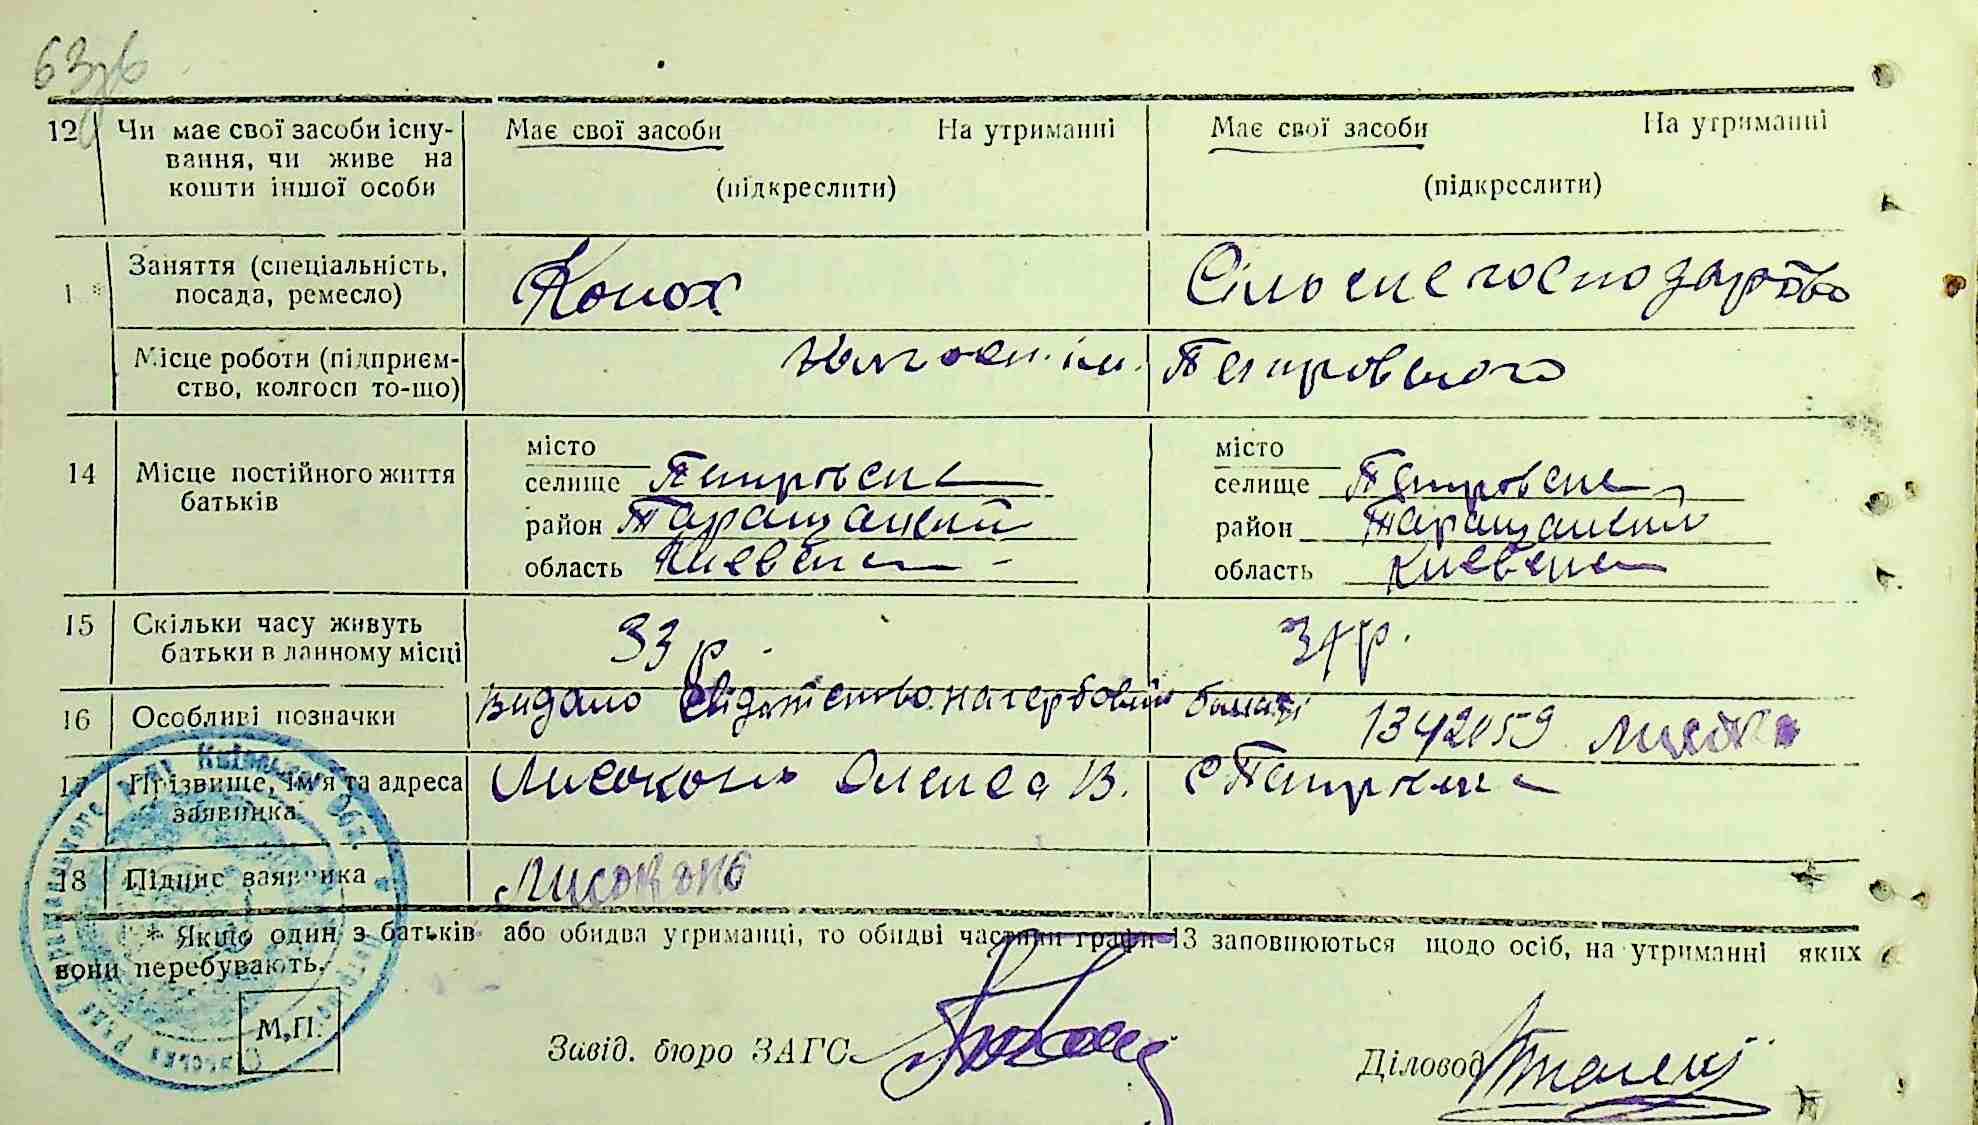 63зв
12 Чи має свої засоби існу-
вання, чи живе на
кошти іншої особи
Має свої засоби На утриманні
(підкреслити)
Має свої засоби На утриманні
(підкреслити)
1 * Заняття (спеціальність,
посада, ремесло)
Конох
Сільське господарство
Місце роботи (підприєм-
ство, колгосп то-що)
Колгосп. ім. Петровського
14 Місце постійного життя
батьків
місто
селище Петровське
район Таращанский
область Киевська
місто
селище Петровське
район Таращанский
область Киевська
15 Скільки часу живуть
батьки в данному місці
33 р.
31 р.
16 Особливі позначки
видало свідотство на гербовій бумазі
17 Прізвище, ім'я та адреса
заявника
Лисоконь Олекса В. с Петрівське
18 Підпис заявника
Лисоконь
* Якщо один з батьків або обидва утриманці, то обидві частини графи 13 заповнюються щодо осіб, на утриманні яких
вони перебувають.
М.П.
Завід. бюро ЗАГС
Діловод